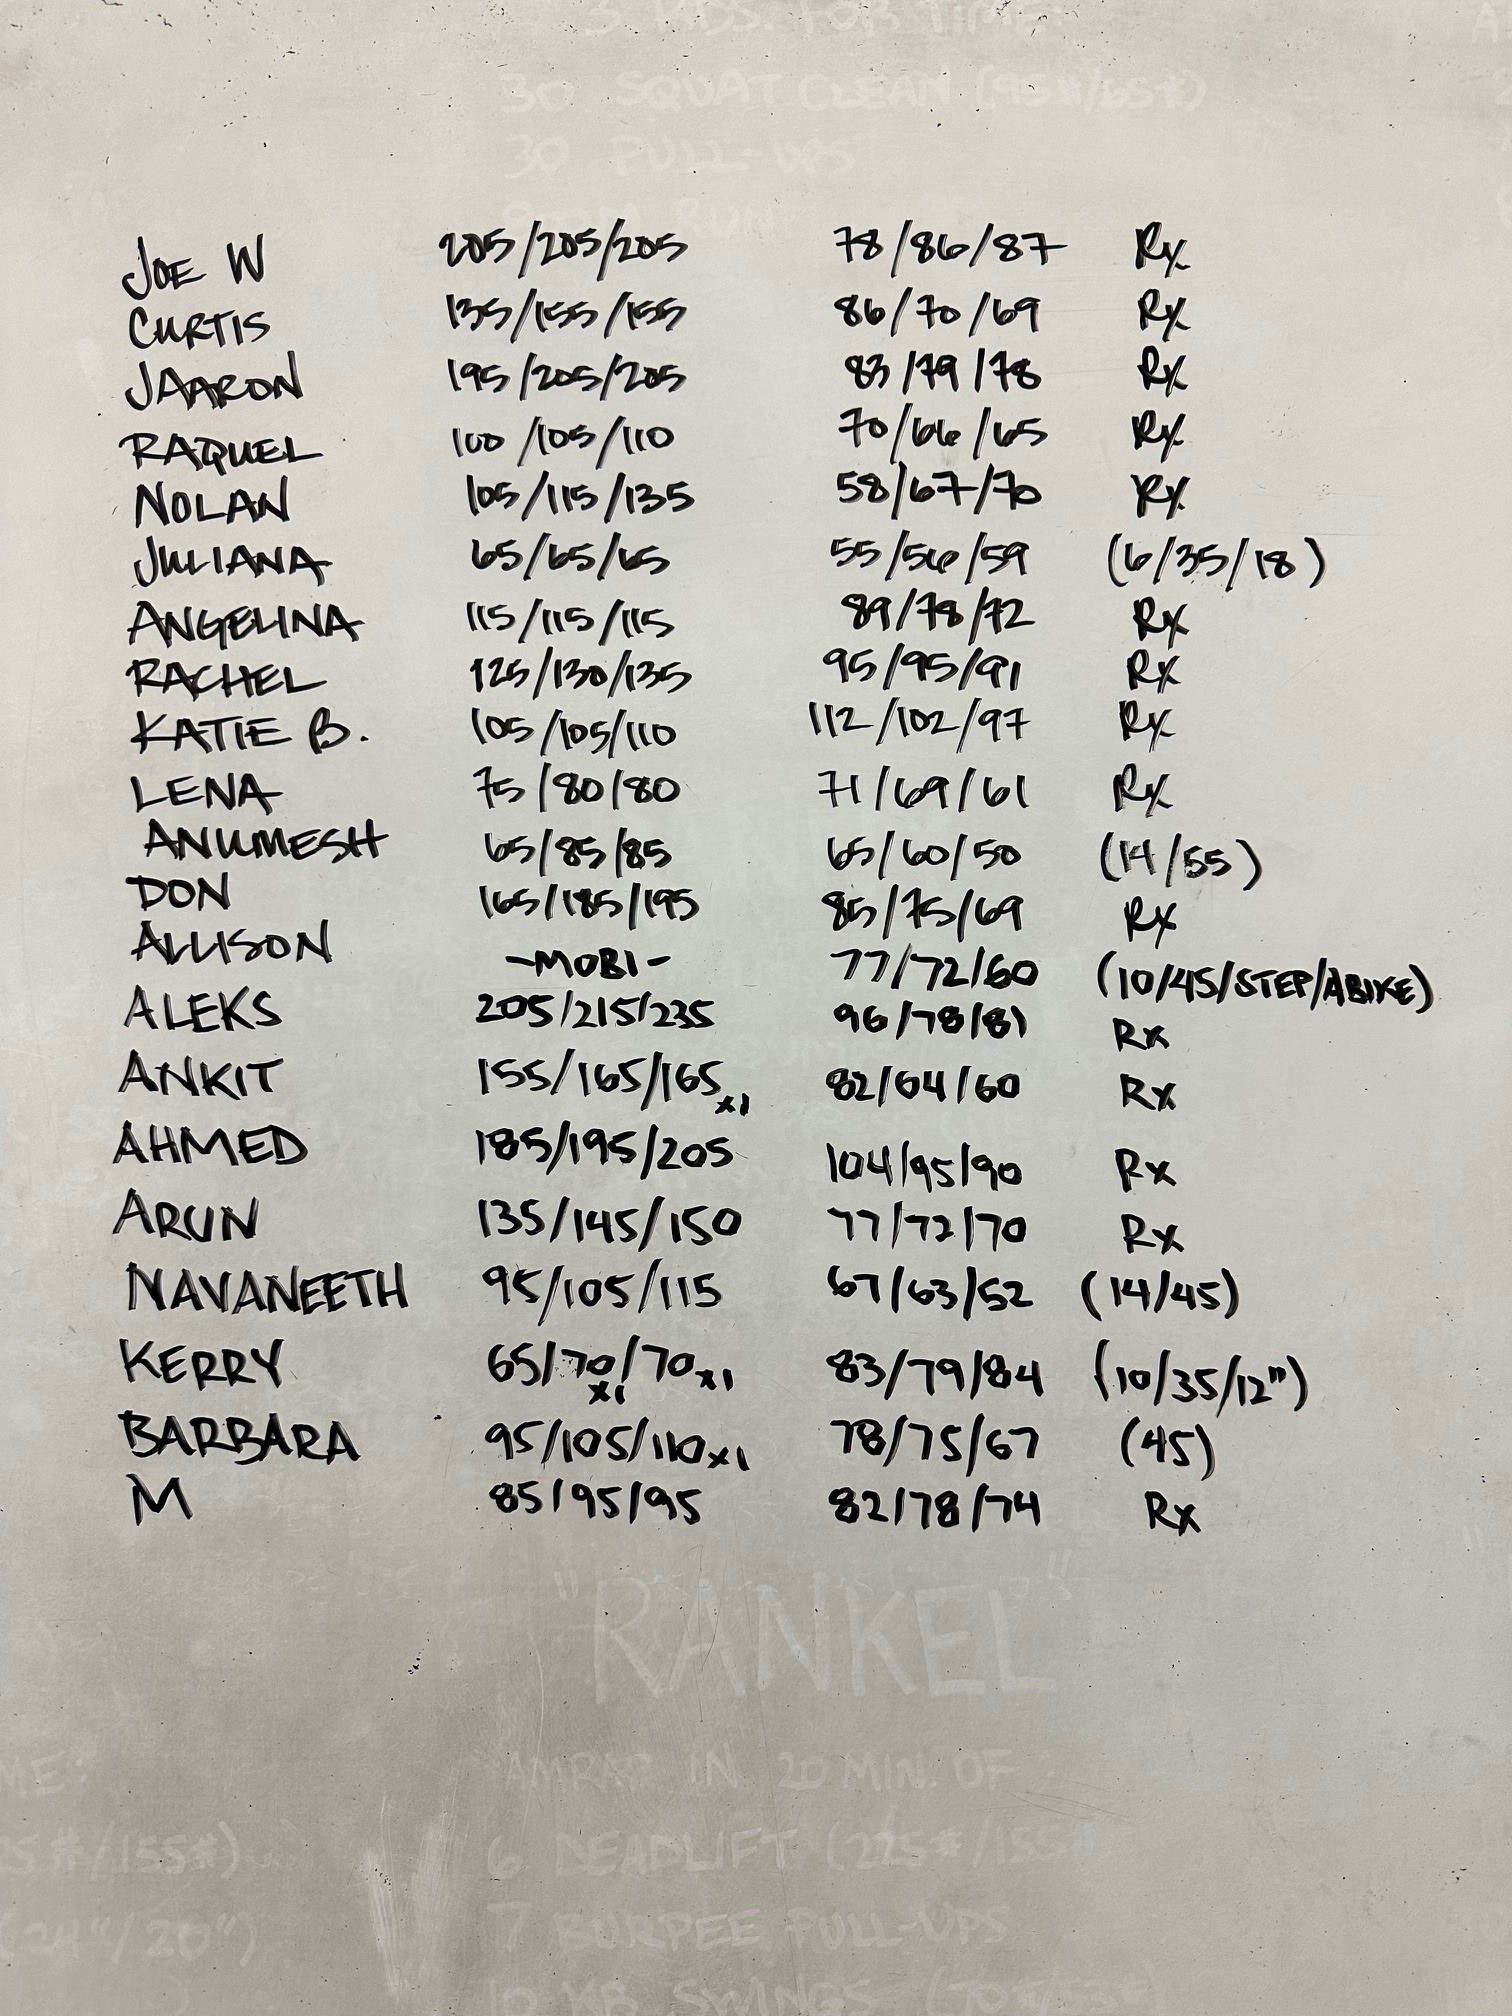 3 RDS. FOR TIME:
30 SQUAT CLEAN (95#/65#)
30 PULL-UPS
RUN
JOE W 205/205/205 78/86/87 Rx
CURTIS 135/155/155 86/70/69 Rx
JAARON 195/205/205 83/79/78 Rx
RAQUEL 100/105/110 70/66/65 Rx
NOLAN 105/115/135 58/67/70 Rx
JULIANA 65/65/65 55/56/59 (6/35/18)
ANGELINA 115/115/115 89/78/72 Rx
RACHEL 125/130/135 95/95/91 Rx
KATIE B. 105/105/110 112/102/97 Rx
LENA 75/80/80 71/69/61 Rx
ANUMESH 65/85/85 65/60/50 (14/55)
DON 165/185/195 85/75/69 Rx
ALLISON -MOBI- 77/72/60 (10/45/STEP/ABIKE)
ALEKS 205/215/235 96/78/81 Rx
ANKIT 155/165/165x1 82/64/60 Rx
AHMED 185/195/205 104/95/90 Rx
ARUN 135/145/150 77/72/70 Rx
NAVANEETH 95/105/115 67/63/52 (14/45)
KERRY 65/70x1/70x1 83/79/84 (10/35/12")
BARBARA 95/105/110x1 78/75/67 (45)
M 85/95/95 82/78/74 Rx
"RANKEL"
AMRAP IN 20 MIN. OF
6 DEADLIFT (225#/155#
7 BURPEE PULL-UPS
10 KB SWINGS
ME:
5#/155#)
(24"/20")